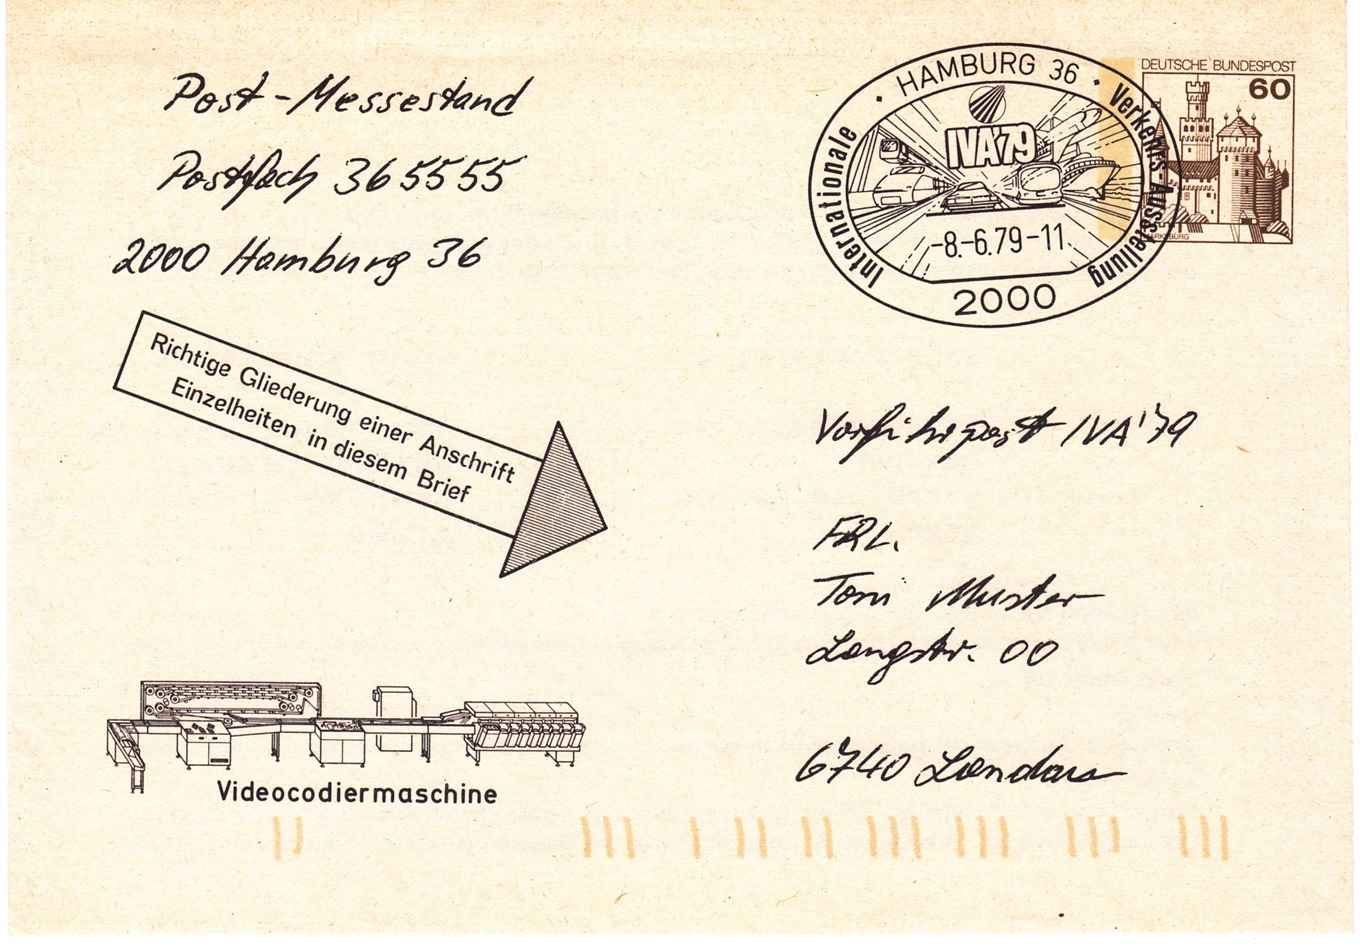 Post-Messestand
Postfach 36 55 55
2000 Hamburg 36
HAMBURG 36
Internationale Verkehrs-Ausstellung
IVA'79
-8.-6.79-11
2000
DEUTSCHE BUNDESPOST
60
MARKSBURG
Richtige Gliederung einer Anschrift
Einzelheiten in diesem Brief
Vorführpost IVA'79
FRL.
Toni Muster
Langstr. 00
6740 Landau
Videocodiermaschine